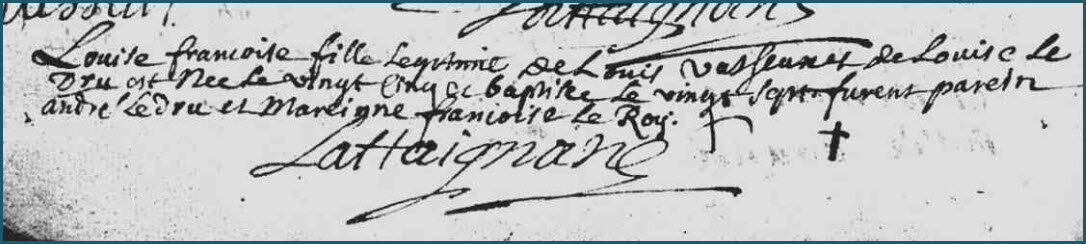 Lattaignans
Louise francoise fille Legitime de Louis Vasseur et de Louise Le
Dru est Nee Le vingt Cinq et baptisee Le vingt sept furent parein
andré Ledru et Mareigne francoise Le Roy.
Lattaignans